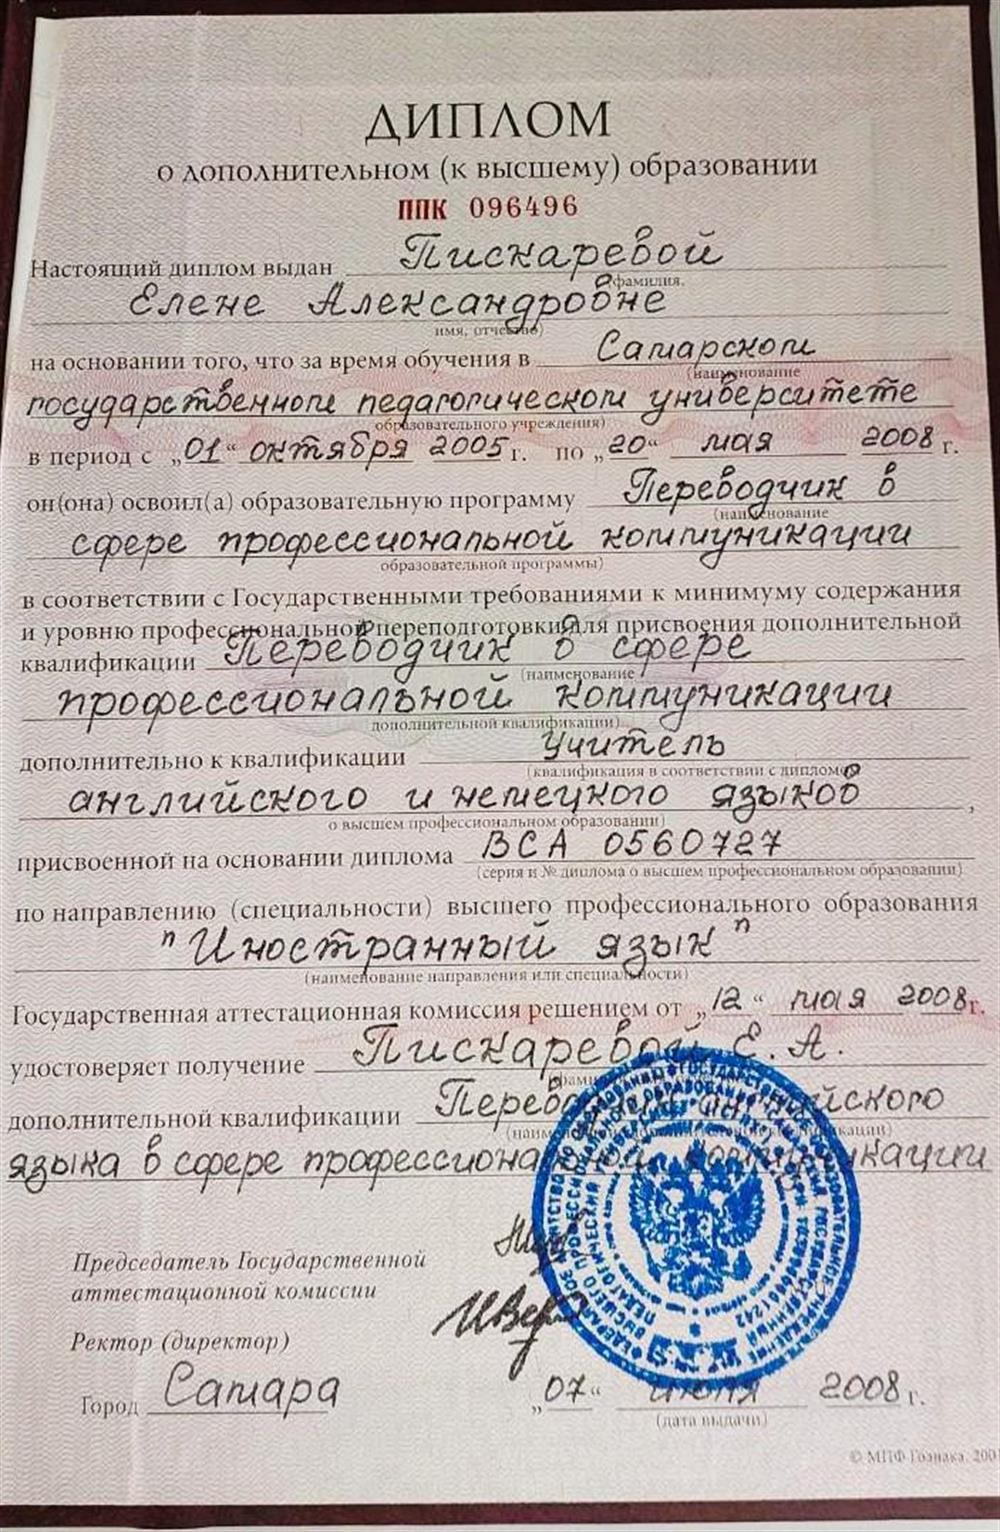 ДИПЛОМ
о дополнительном (к высшему) образовании
ППК 096496
Настоящий диплом выдан Пискаревой
фамилия,
Елене Александровне
имя, отчество)
на основании того, что за время обучения в Самарском
(наименование
государственном педагогическом университете
образовательного учреждения)
в период с „01“ октября 2005 г. по „20“ мая 2008 г.
он(она) освоил(а) образовательную программу Переводчик в
(наименование
сфере профессиональной коммуникации
образовательной программы)
в соответствии с Государственными требованиями к минимуму содержания
и уровню профессиональной переподготовки для присвоения дополнительной
квалификации Переводчик в сфере
(наименование
профессиональной коммуникации
дополнительной квалификации)
дополнительно к квалификации Учитель
(квалификация в соответствии с дипломом
английского и немецкого языков,
о высшем профессиональном образовании)
присвоенной на основании диплома ВСА 0560727
(серия и № диплома о высшем профессиональном образовании)
по направлению (специальности) высшего профессионального образования
"Иностранный язык"
(наименование направления или специальности)
Государственная аттестационная комиссия решением от „12“ мая 2008 г.
удостоверяет получение Пискаревой Е. А.
дополнительной квалификации Переводчик английского
языка в сфере профессиональной коммуникации
Председатель Государственной
аттестационной комиссии
Ректор (директор)
Город Самара „07“ июля 2008 г.
(дата выдачи)
© МПФ Гознака.